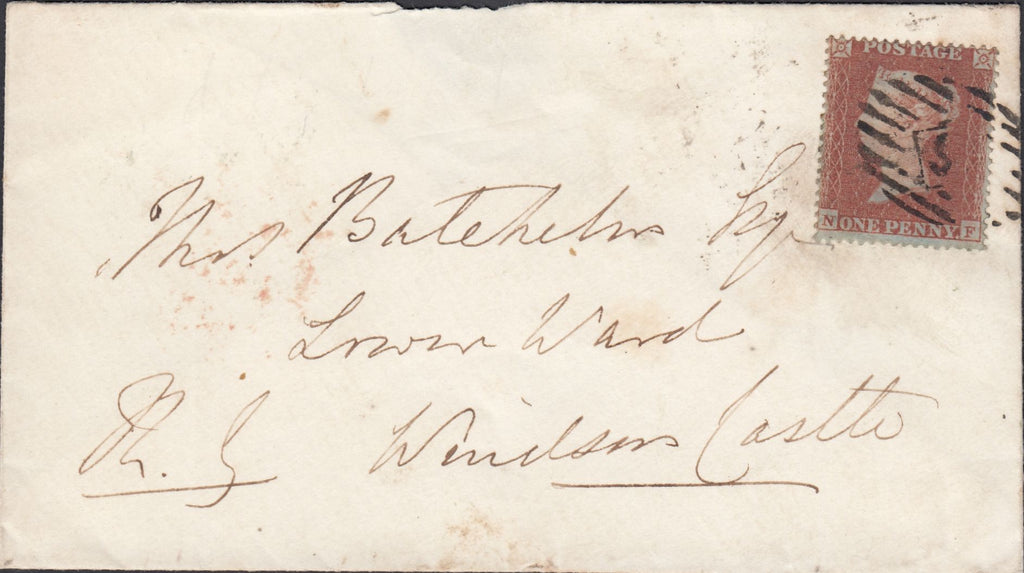 POSTAGE
N ONE PENNY F
Thos Batchelor Esq
Lower Ward
Windsor Castle